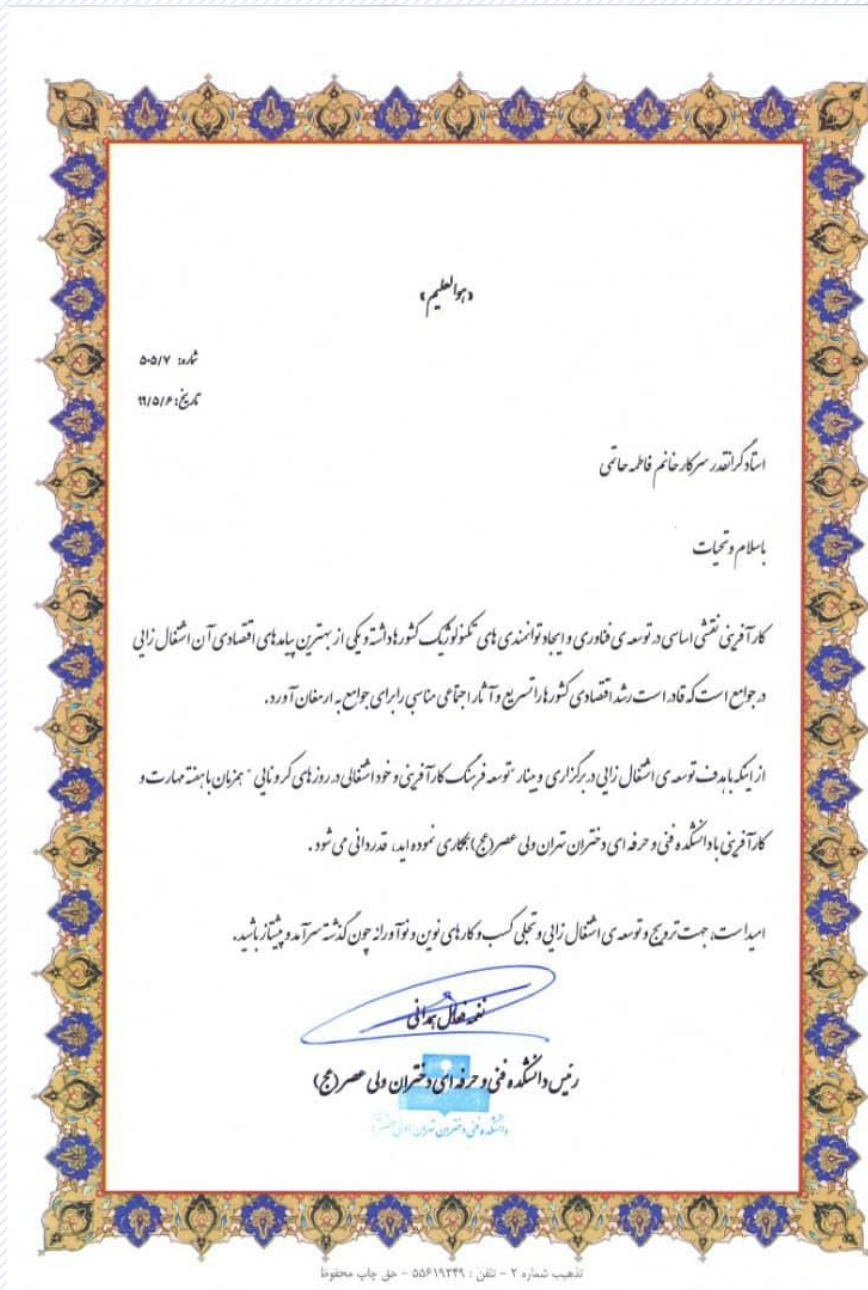 «هوالعلیم»
شماره: ۵۰۵/۷
تاریخ: ۹۹/۵/۶
استاد گرانقدر سرکار خانم فاطمه حاتمی
باسلام و تحیات
کارآفرینی نقشی اساسی در توسعه ی فناوری و ایجاد توانمندی های تکنولوژیک کشورها داشته و یکی از بهترین پیامدهای اقتصادی آن اشتغال زایی
در جوامع است که قادر است رشد اقتصادی کشورها را تسریع و آثار اجتماعی مناسبی را برای جوامع به ارمغان آورد.
از اینکه با هدف توسعه ی اشتغال زایی در برگزاری وبینار "توسعه فرهنگ کارآفرینی و خود اشتغالی در روزهای کرونایی" همزمان با هفته مهارت و
کارآفرینی با دانشکده فنی و حرفه ای دختران تهران ولی عصر(عج) همکاری نموده اید، قدردانی می شود.
امید است، جهت ترویج و توسعه ی اشتغال زایی و تجلی کسب و کارهای نوین و نوآورانه چون گذشته سرآمد و پیشتاز باشید.
همدانی
رئیس دانشکده فنی و حرفه ای دختران ولی عصر(عج)
دانشکده فنی دختران تهران (ولی عصر)
تذهیب شماره ۲ - تلفن : ۵۵۶۱۹۲۴۹ - حق چاپ محفوظ